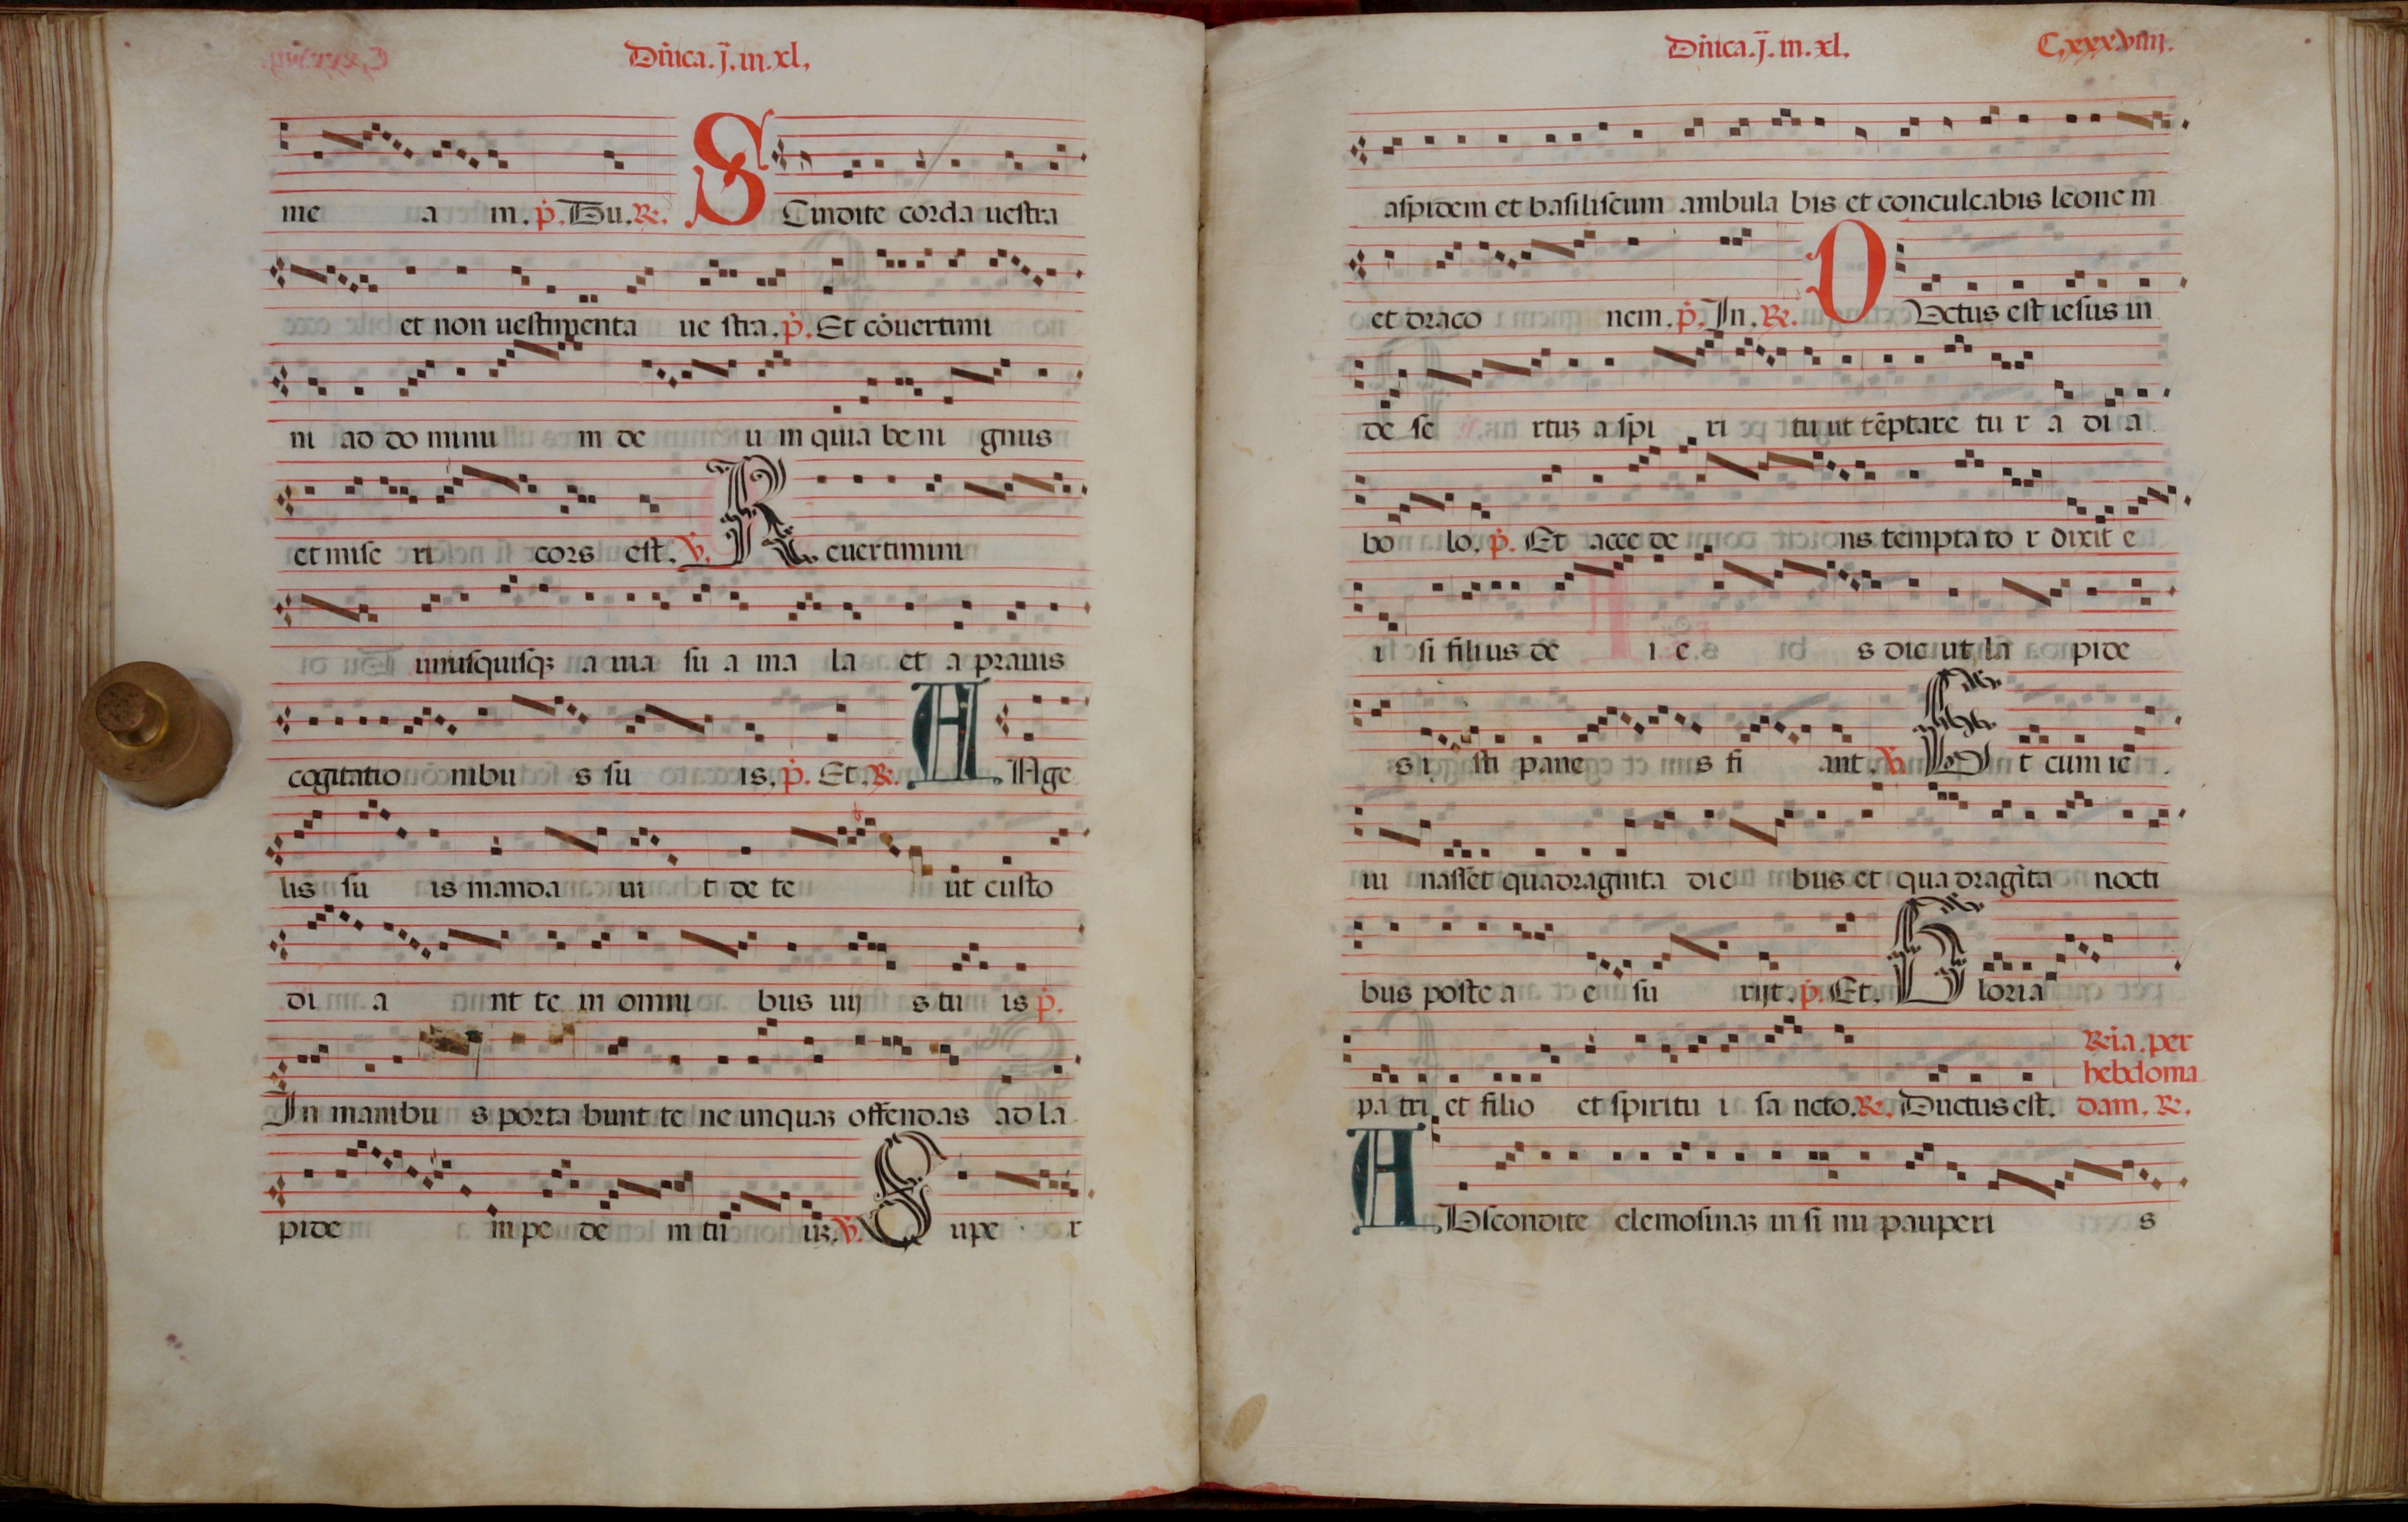 Dñica.j̄.in.xl.
me a m. p̄. Tu. R̄. SCindite corda uestra
et non uestimenta ue stra. p̄. Et cōuertimi
ni ad do minu m de u m quia be ni gnus
et mise ri cors est. v̄. Reuertimini
unusquisqz a uia su a ma la et a prauis
cogitatio nibu s su is. p̄. Et. R̄. ANge
lis su is manda ui t de te ut custo
di a nt te in omni bus uij s tu is p̄.
In manibu s porta bunt te ne unquaz offendas ad la
pide m pe de m tu uz. v̄. Supe r
Dñica.j̄.in.xl. C.xxx.viiij.
aspidem et basiliscum ambula bis et conculcabis leone m
et draco nem. p̄. In. R̄. DUctus est iesus in
de se rtuz a spi ri tu ut tēptare tu r a di a
bo lo. p̄. Et acce de ns tempta to r dixit e
i si filius de i e s dic ut la pide
s i sti pane s fi ant. v̄. Et cum ie
iu nasset quadraginta die bus et qua dragīta nocti
bus poste a e su rijt. p̄. Et. Gloria
R̄ia. per
hebdoma
pa tri et filio et spiritu i sa ncto. R̄. Ductus est. dam. R̄.
ABscondite elemosinaz in si nu pauperi s